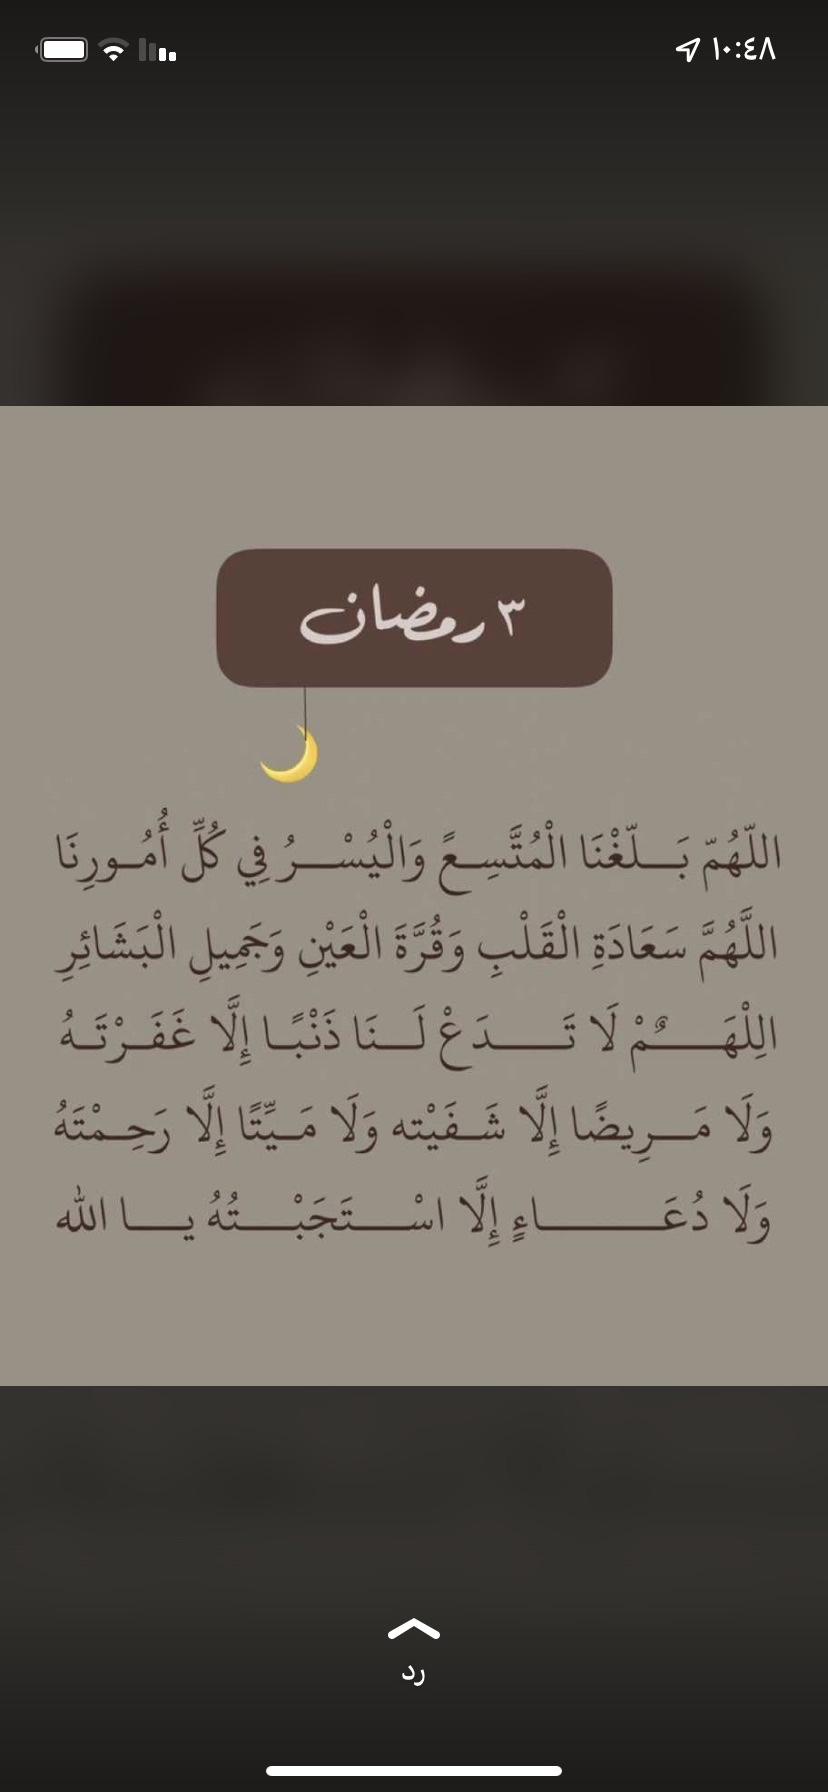 ١٠:٤٨
٣ رمضان
اللّهُمّ بَــلّغْنَا الْمُتَّسِعً وَالْيُسْــرُ فِي كُلِّ أُمُـورِنَا
اللَّهُمَّ سَعَادَةِ الْقَلْبِ وَقُرَّةَ الْعَيْنِ وَجَمِيلِ الْبَشَائِرِ
الِلْهَــــمٌمْ لَا تَــــدَعْ لَــنَا ذَنْبًـا إِلَّا غَفَــرْتَـهُ
وَلَا مَــرِيضًا إِلَّا شَـفَيْته وَلَا مَـيِّتًا إِلَّا رَحِـمْتَهُ
وَلَا دُعَــــــاءٍ إِلَّا اسْــتَجَبْــتُهُ يـــا الله
رد